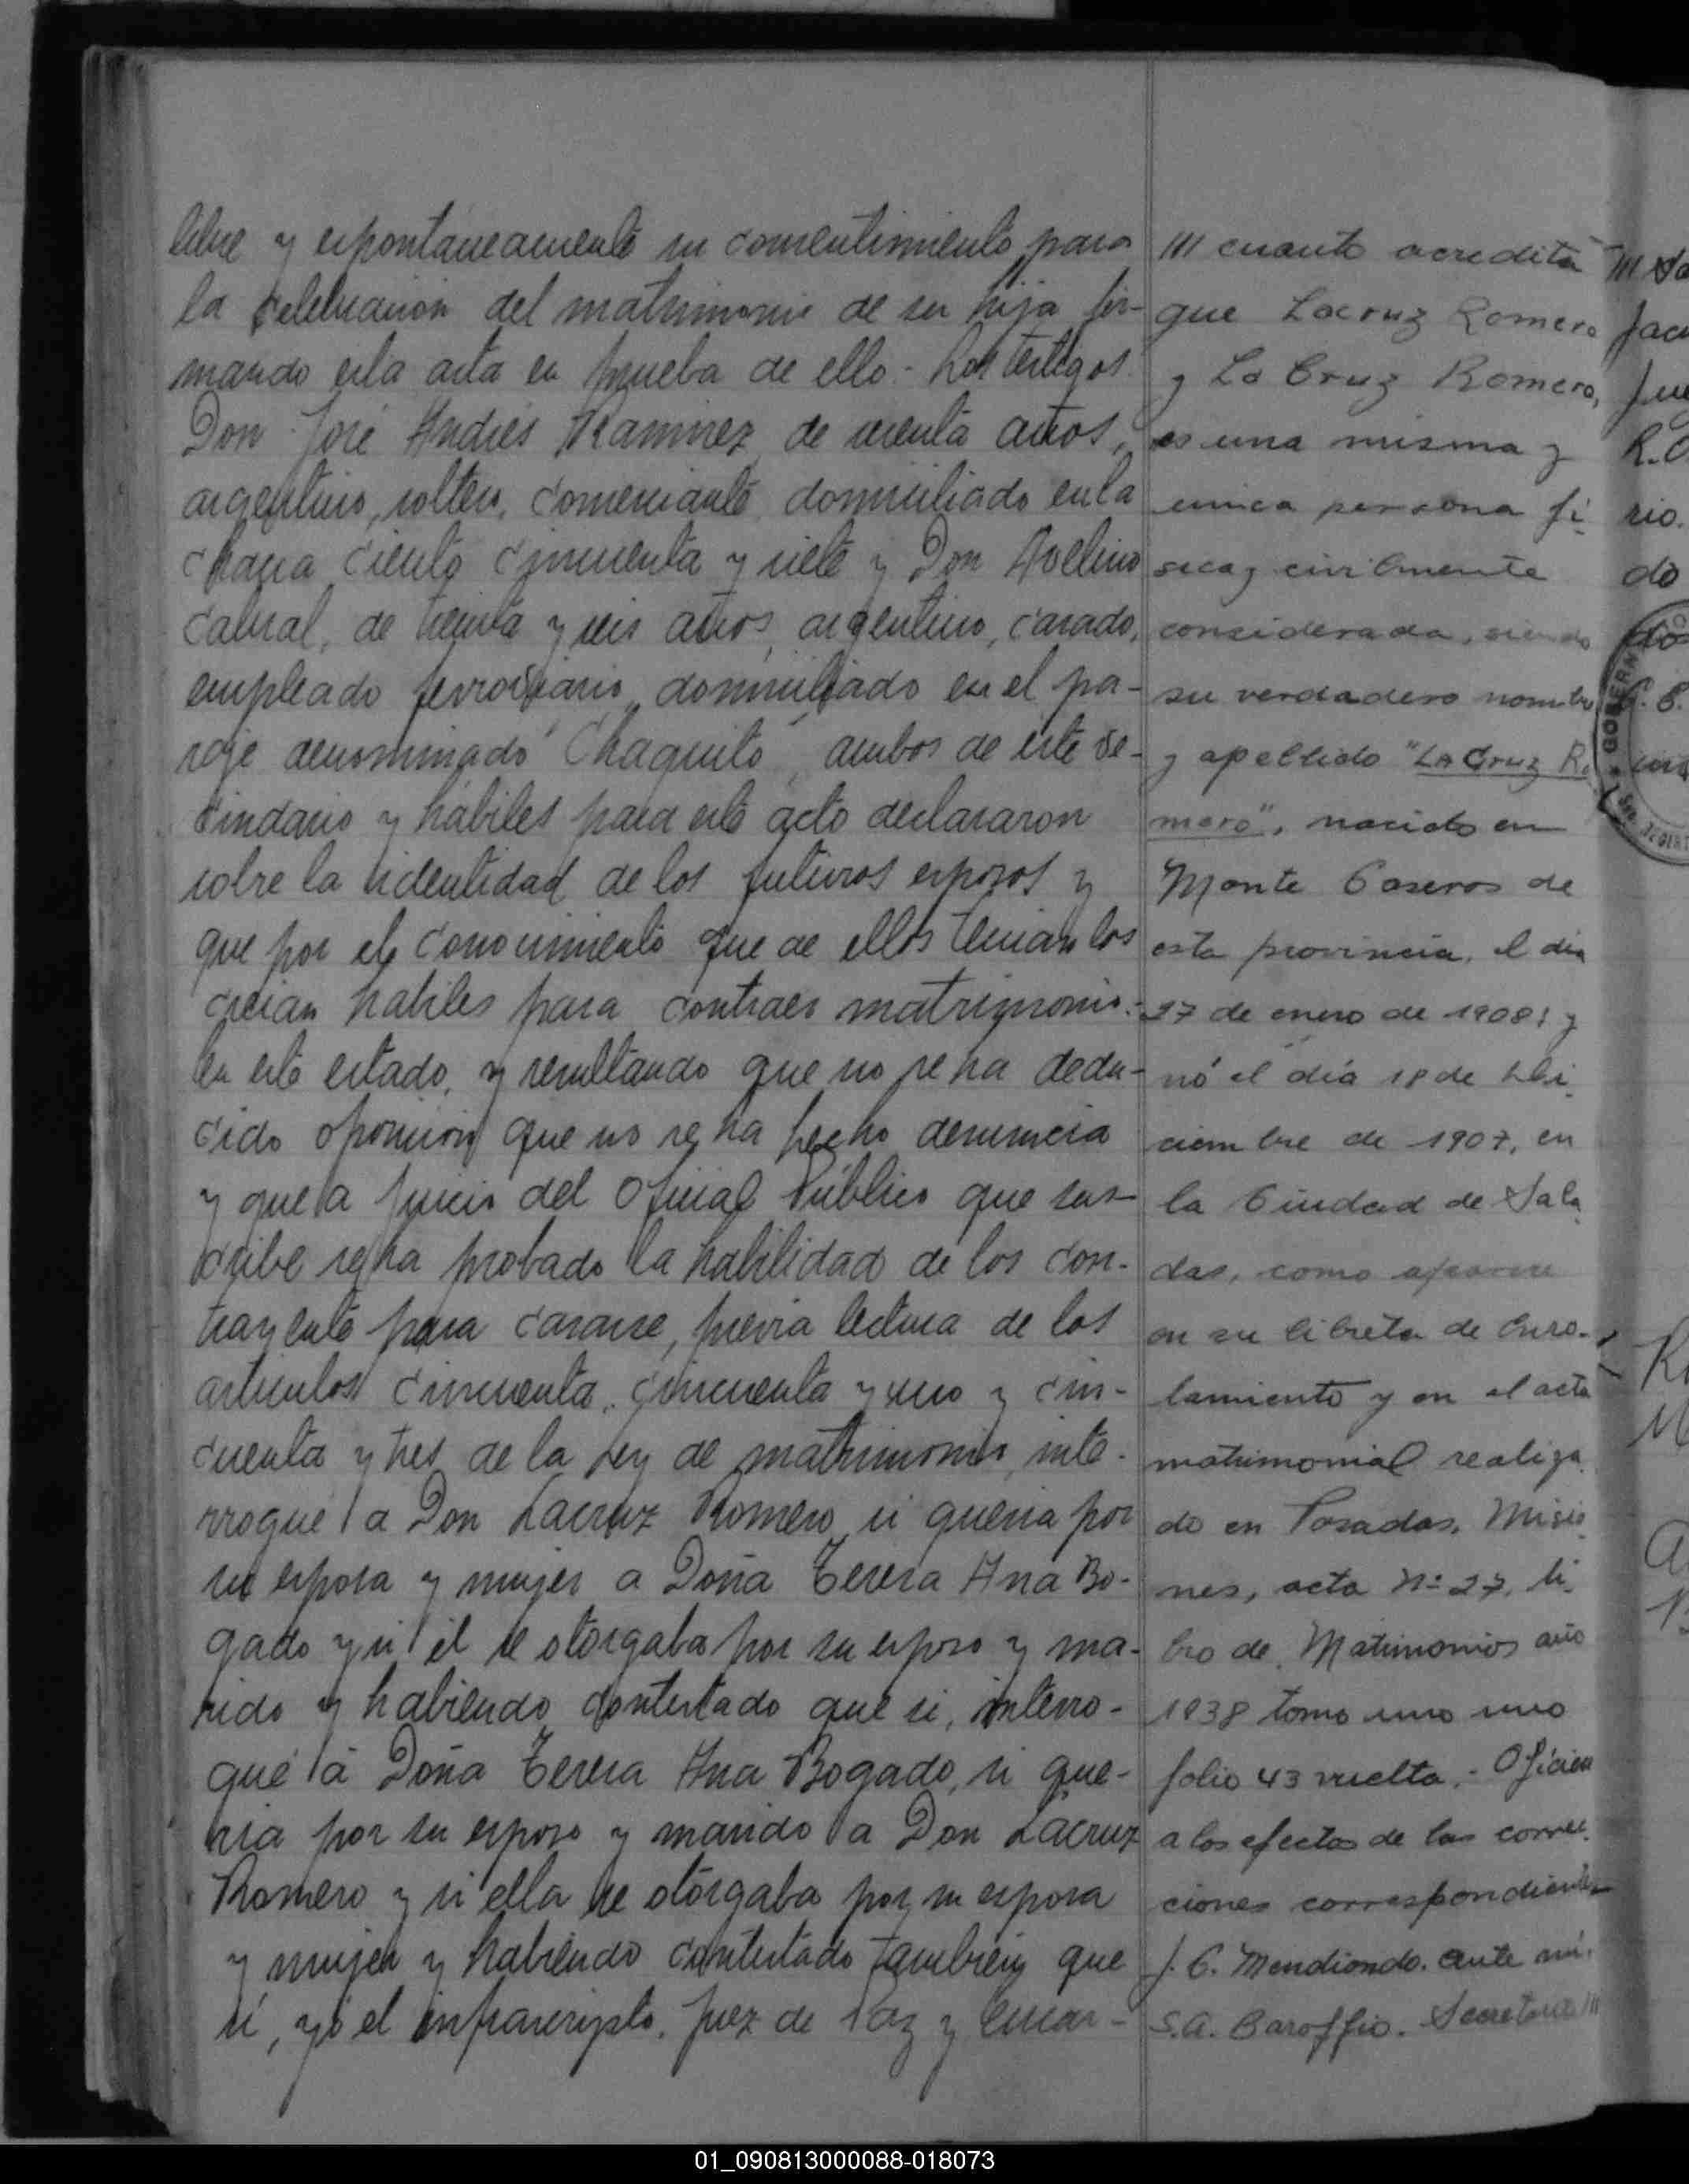 libre y espontaneamente su consentimiento para
la celebracion del matrimonio de su hija fir-
mando esta acta en prueba de ello.- Los testigos
Don José Andrés Ramirez, de años,
argentino, soltero, comerciante, domiciliado en la
chacra ciento cincuenta y siete y Don Avelino
Cabral, de treinta y seis años, argentino, casado,
empleado ferroviario, domiciliado en el pa-
raje denominado "Chaquito", ambos de este ve-
cindario y hábiles para este acto declararon
sobre la identidad de los futuros esposos y
que por el conocimiento que de ellos tenian los
creian habiles para contraer matrimonio.-
En este estado, y resultando que no se ha dedu-
cido oposicion que no se ha hecho denuncia
y que a juicio del Oficial Público que sus-
cribe se ha probado la habilidad de los con-
trayente para casarse, previa lectura de los
articulos cincuenta, cincuenta y uno y cin-
cuenta y tres de la Ley de matrimonio, inte-
rrogué a Don Lacruz Romero si queria por
su esposa y mujer a Doña Teresa Ana Bo-
gado y si él se otorgaba por su esposo y ma-
rido y habiendo contestado que si, interro-
gué a Doña Teresa Ana Bogado, si que-
ria por su esposo y marido a Don Lacruz
Romero y si ella se otorgaba por su esposa
y mujer y habiendo contestado tambien que
si, yo el infrascripto, Juez de Paz y Encar-
/// cuanto acredita
que Lacruz Romero
y La Cruz Romero,
es una misma y
unica persona fi-
sica y civilmente
considerada, siendo
su verdadero nombre
y apellido "La Cruz Ro
mero", nacido en
Monte Caseros de
esta provincia, el dia
27 de enero de 1908; y
nó el día 18 de Di-
ciembre de 1907, en
la Ciudad de Sala
das, como aparece
en su libreta de Enro-
lamiento y en el acta
matrimonial realiza
do en Posadas, Misio
nes, acta Nº 27, li-
bro de Matrimonios año
1938 tomo uno
folio 43 vuelta.- Oficiese
a los efectos de las correc-
ciones correspondientes
J. C. Mendiondo. ante mi.
S.A. Baroffio. Secretario ///
01_090813000088-018073